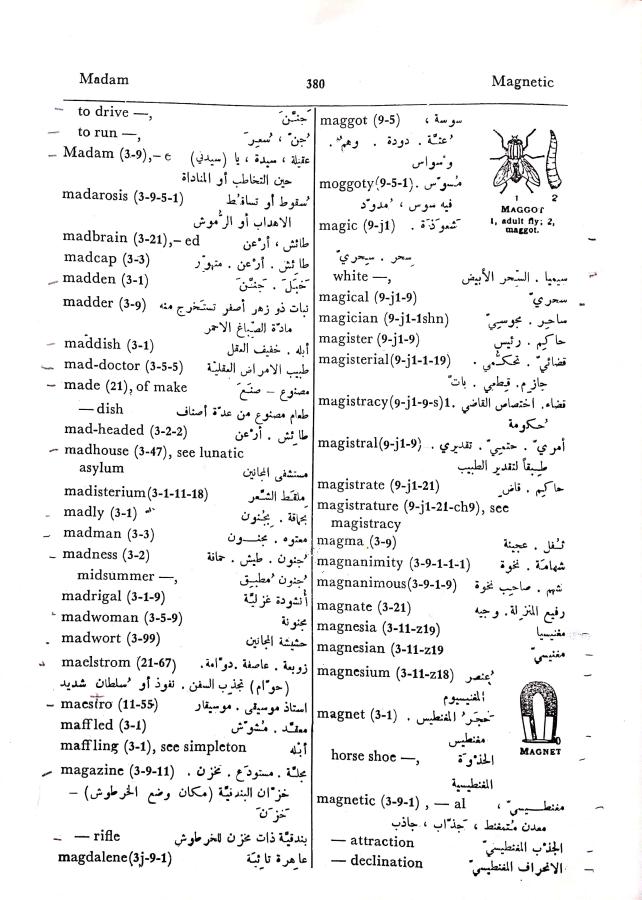 Madam 380 Magnetic
to drive —, جَنَّنَ
to run —, جُنّ ، سُعِرَ
Madam (3-9),– e عقيلة ، سيدة ، يا (سيدتي)
حين التخاطب أو المناداة
madarosis (3-9-5-1) سُقوط أو تساقُط
الاهداب أو الرُّموش
madbrain (3-21),– ed طائش ، أرْعن
madcap (3-3) طائش . أرْعن . متهوّر
madden (3-1) خَبَّلَ . جَنَّنَ
madder (3-9) نبات ذو زهر أصفر تستخرج منه
مادّة الصِّباغ الاحمر
maddish (3-1) أبله . خفيف العقل
mad-doctor (3-5-5) طبيب الامراض العقليّة
made (21), of make مصنوع – صنَعَ
— dish طعام مصنوع من عدّة أصناف
mad-headed (3-2-2) طائش . أرْعن
madhouse (3-47), see lunatic
asylum مستشفى المجانين
madisterium(3-1-11-18) ملقط الشَّعر
madly (3-1) بحماقة . بجُنون
madman (3-3) معتوه . مجنون
madness (3-2) جُنون . طيش . حماقة
midsummer —, جُنون مُطبِق
madrigal (3-1-9) أُنشودة غزليّة
madwoman (3-5-9) مجنونة
madwort (3-99) حشيشة المجانين
maelstrom (21-67) زوبعة . عاصفة .دوّامة .
(حوّام) تجذب السفن . نفوذ أو سُلطان شديد
maestro (11-55) استاذ موسيقى . موسيقار
maffled (3-1) معقد . مشوّش
maffling (3-1), see simpleton أبْله
magazine (3-9-11) مجلّة . مستودَع . مخزن .
خزّان البندقيّة (مكان وضع الخرطوش) –
خزَنَ
— rifle بندقيّة ذات مخزن للخرطوش
magdalene(3j-9-1) عاهرة تائبة
maggot (9-5) سوسة ،
عُثّة . دودة . وهم .
وسواس
moggoty(9-5-1) مُسوّس .
فيه سوس ، مُدوّد
magic (9-j1) شعْوَذة .
سِحر . سِحريّ
1 2
MAGGOT
1, adult fly; 2,
maggot.
white —, سيميا . السِّحر الأبيض
magical (9-j1-9) سحريّ
magician (9-j1-1shn) ساحِر . مجوسيّ
magister (9-j1-9) حاكِم . رئيس
magisterial(9-j1-1-19) قضائيّ . تحكُّمي .
جازم. قطعي . باتّ
magistracy(9-j1-9-s)1. قضاء. اختصاص القاضي
حُكومة
magistral(9-j1-9) أمريّ . حتميّ . تقديري .
طبقاً لتقدير الطبيب
magistrate (9-j1-21) حاكِم . قاضٍ
magistrature (9-j1-21-ch9), see
magistracy
magma (3-9) ثُفل . عجينة
magnanimity (3-9-1-1-1) شهامَة . نخوة
magnanimous(3-9-1-9) شهم . صاحب نخوة
magnate (3-21) رفيع المنزلة . وجيه
magnesia (3-11-z19) مغنيسيا
magnesian (3-11-z19 مغنيسيّ
magnesium (3-11-z18) عُنصر
المغنيسيوم
magnet (3-1) حَجَرُ المغنطيس .
مغنطيس
horse shoe —, الحَذْوَة
المغنطيسية
MAGNET
magnetic (3-9-1) , — al مغنطيسيّ ،
معدن مُتمغنط ، جذّاب ، جاذب
— attraction الجذْب المغنطيسيّ
— declination الانحراف المغنطيسيّ